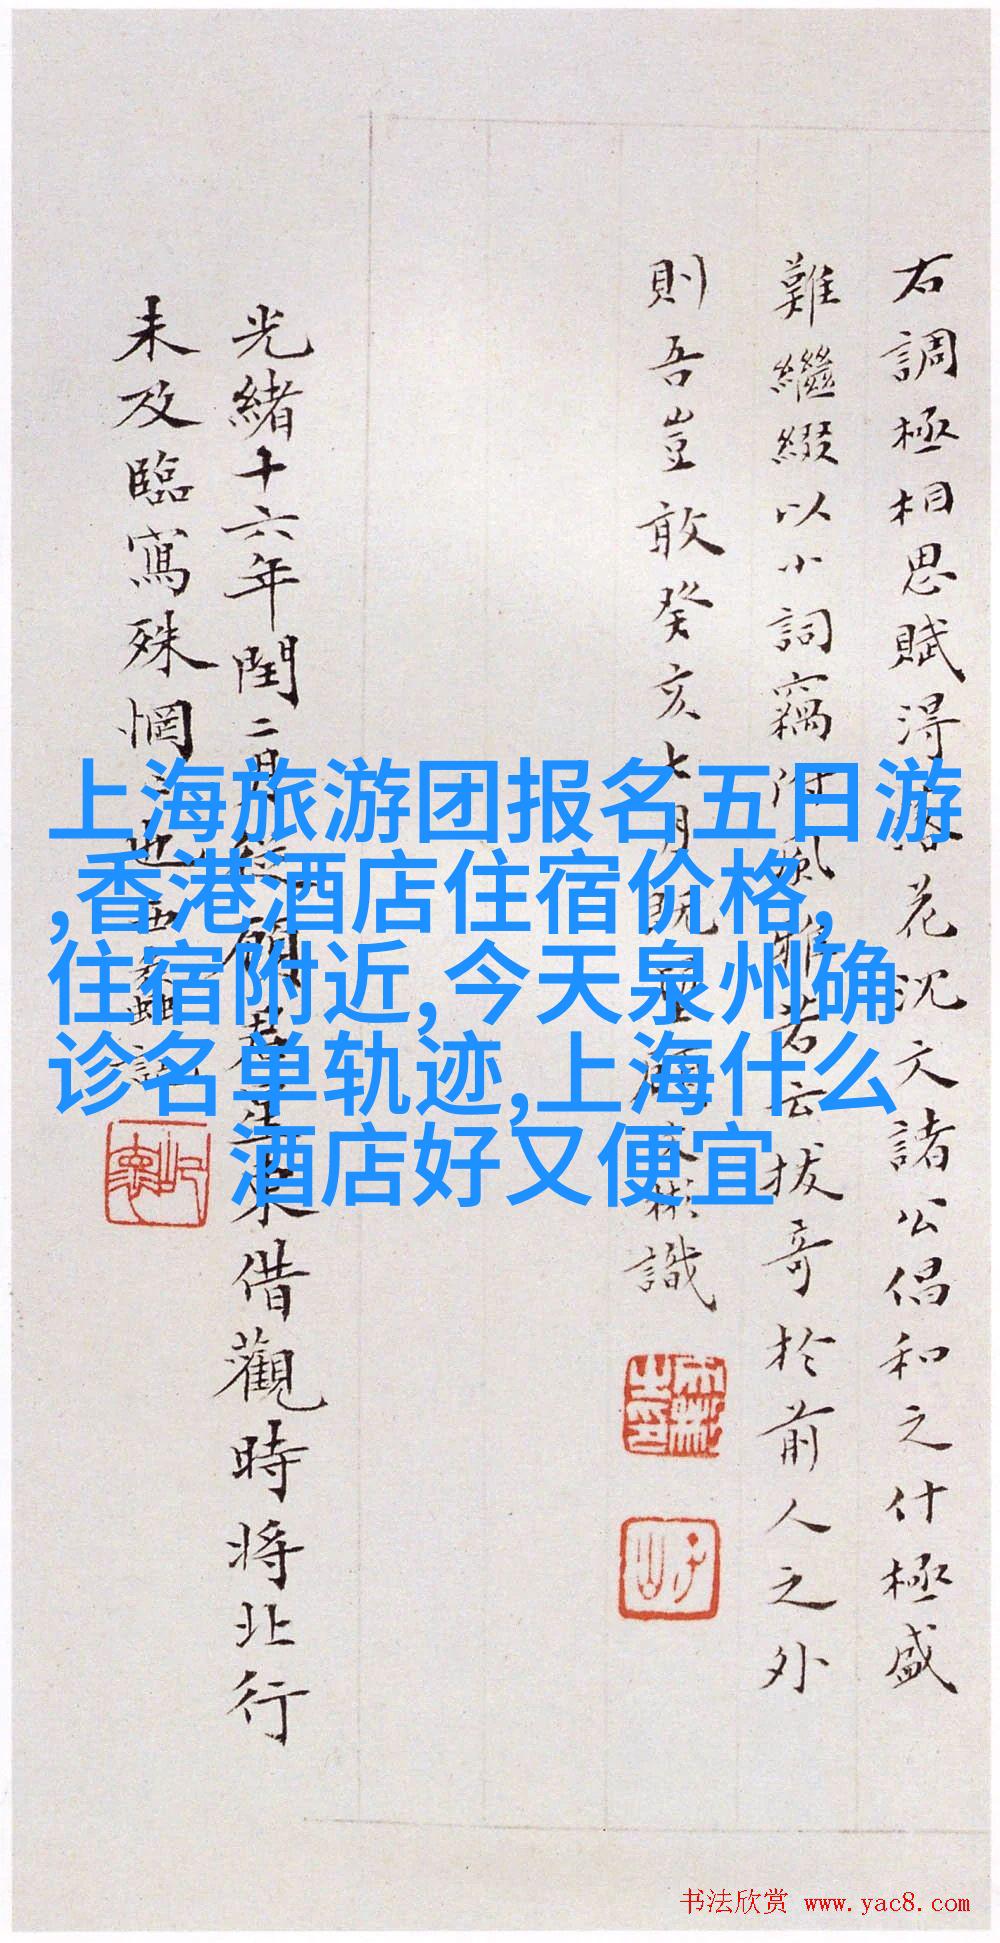 右調極相思賦得落花沈文諸公倡和之什極盛
難繼綴以小詞竊附風雅若云拔奇於前人之外
則吾豈敢癸亥七月既望顧文彬識
光緒十六年閏二月從顧君
東借觀時將北行
未及臨寫殊惘
也西蠡
上海旅游团报名五日游
,香港酒店住宿价格,
住宿附近,今天泉州确
诊名单轨迹,上海什么
酒店好又便宜
书法欣赏 www.yac8.com